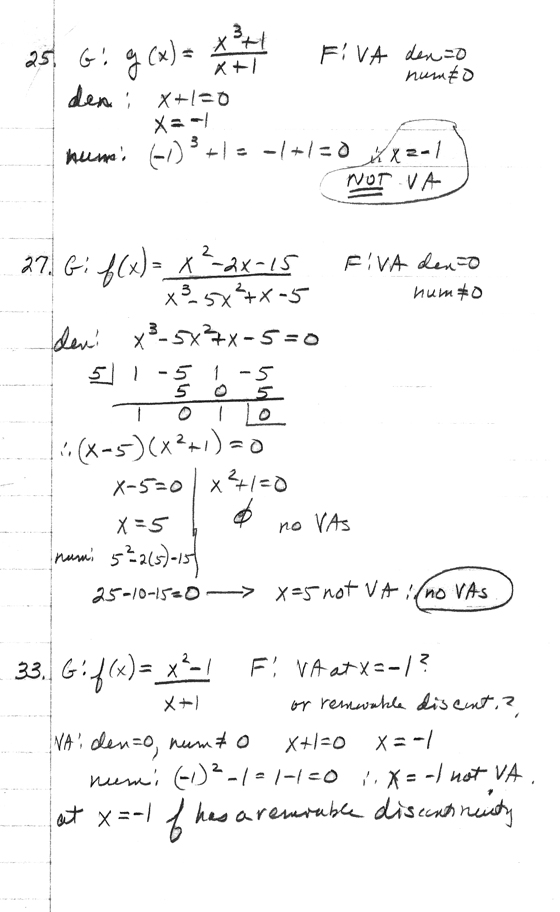 25. G: g(x) = x³+1 / x+1   F: VA den=0
num≠0
den: x+1=0
x=-1
num: (-1)³+1 = -1+1=0 ∴ x=-1
NOT VA
27. G: f(x) = x²-2x-15 / x³-5x²+x-5   F: VA den=0
num≠0
den: x³-5x²+x-5=0
5| 1 -5 1 -5
5 0 5
1 0 1 |0
∴ (x-5)(x²+1)=0
x-5=0 | x²+1=0
x=5 | ∅ no VAs
num: 5²-2(5)-15
25-10-15=0 → x=5 not VA ∴ no VAs
33. G: f(x) = x²-1 / x+1   F: VA at x=-1?
or removable discont.?
VA: den=0, num≠0   x+1=0   x=-1
num: (-1)²-1=1-1=0 ∴ x=-1 not VA.
at x=-1 f has a removable discontinuity